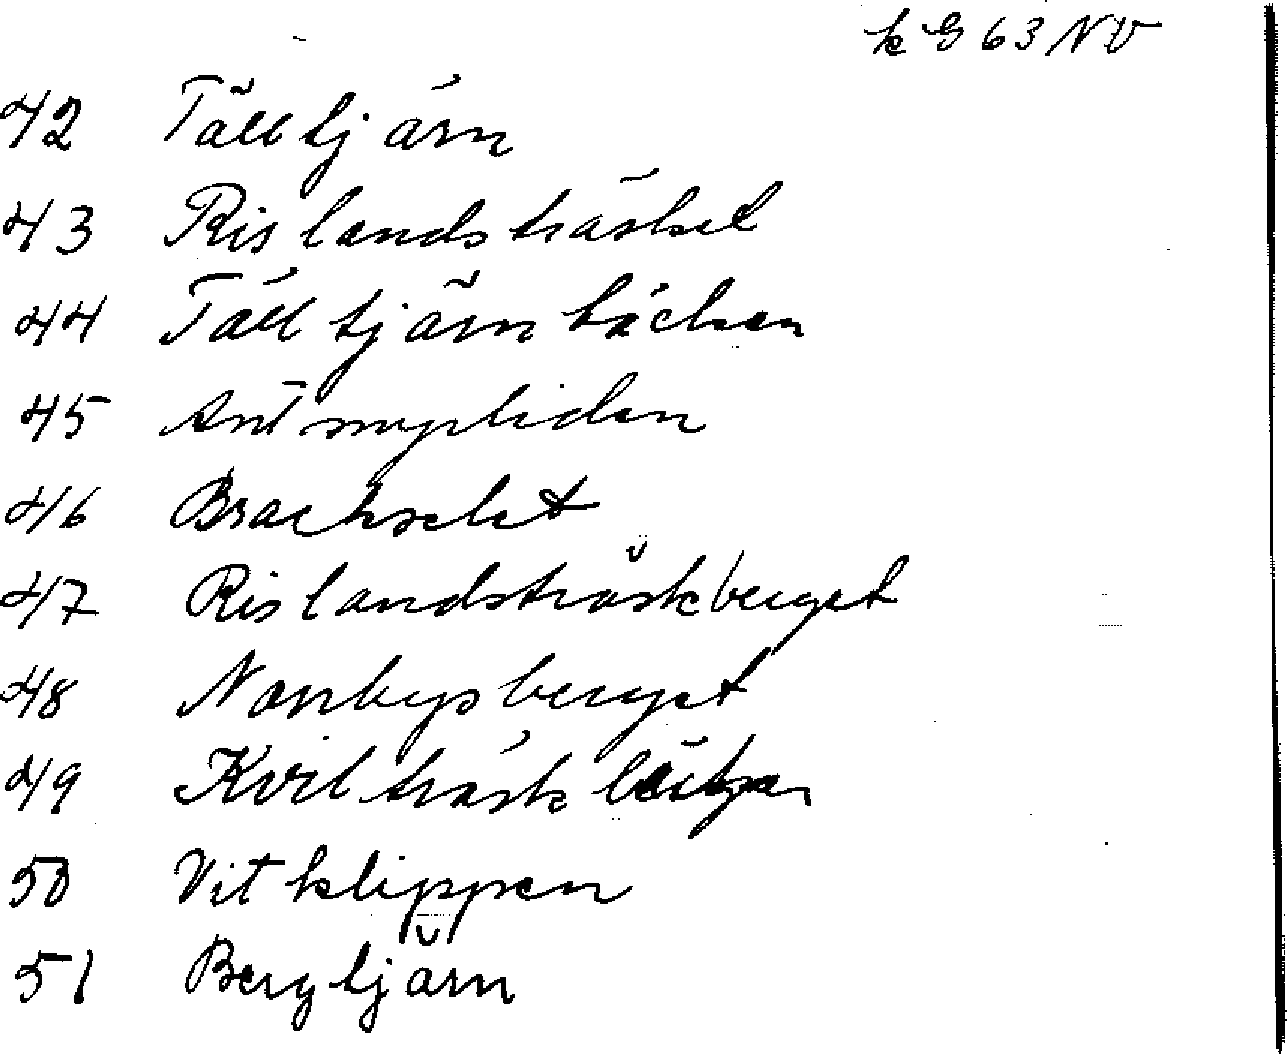 k G 63 NV
42 Tälltjärn
43 Rislandsträsket
44 Tälltjärnbäcken
45 Antmyrliden
46 Brackselet
47 Rislandsträskberget
48 Norrbysberget
49 Kvilträsk
50 Vitklippen
51 Bergtjärn